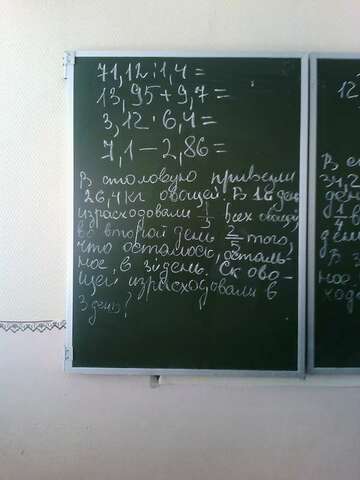 71,12 : 1,4 =
13,95 + 9,7 =
3,12 · 6,4 =
7,1 − 2,86 =
В столовую привезли
26,4 кг овощей. В 1й день
израсходовали 1/3 всех овощей,
во второй день 2/5 того,
что осталось, осталь-
ное, в 3й день. Ск ово-
щей израсходовали в
3 день?
12
В
34,2
ден
В 3
ное